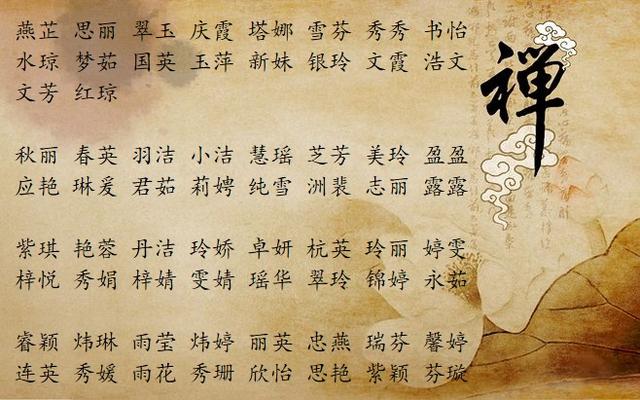 燕芷 思丽 翠玉 庆霞 塔娜 雪芬 秀秀 书怡
水琼 梦茹 国英 玉萍 新妹 银玲 文霞 浩文
文芳 红琼
秋丽 春英 羽洁 小洁 慧瑶 芝芳 美玲 盈盈
应艳 琳爱 君茹 莉娉 纯雪 洲裴 志丽 露露
紫琪 艳蓉 丹洁 玲娇 卓妍 杭英 玲丽 婷雯
梓悦 秀娟 梓婧 雯婧 瑶华 翠玲 锦婷 永茹
睿颖 炜琳 雨莹 炜婷 丽英 忠燕 瑞芬 馨婷
连英 秀媛 雨花 秀珊 欣怡 思艳 紫颖 芬璇
禅